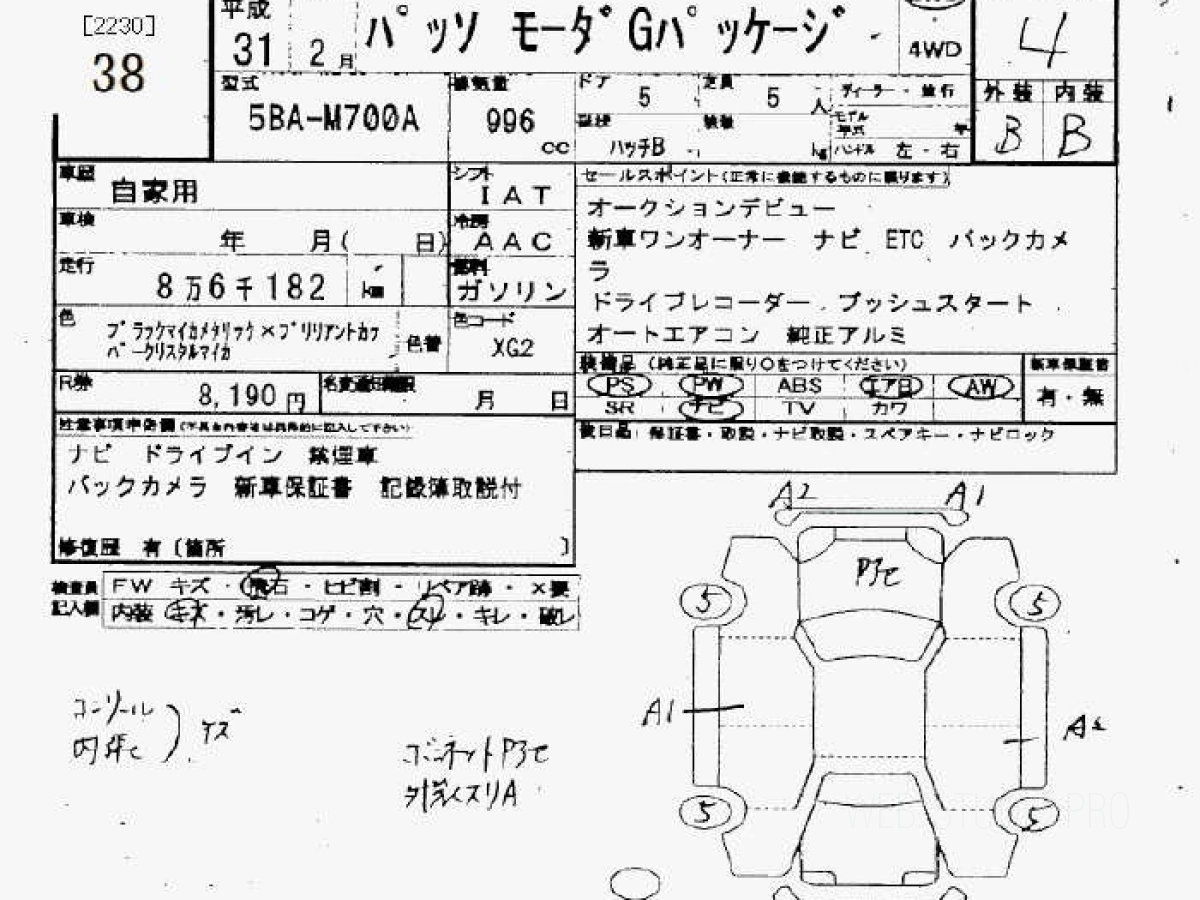 [2230]
38
平成
31 2月
パッソ モーダGパッケージ
4WD
4
型式
5BA-M700A
排気量
996
cc
ドア 5
定員 5 人
ディーラー・並行
モデル年式 年
ハンドル 左・右
形状 ハッチB
積載 kg
外装 内装
B B
車歴
自家用
シフト
IAT
車検
年 月( 日)
冷房
AAC
走行
8万6千182 km
燃料
ガソリン
色
ブラックマイカメタリック×ブリリアントカッ
パークリスタルマイカ
色替
色コード
XG2
R券
8,190円
名変通知期限
月 日
セールスポイント(正常に機能するものに限ります)
オークションデビュー
新車ワンオーナー ナビ ETC バックカメ
ラ
ドライブレコーダー プッシュスタート
オートエアコン 純正アルミ
装備品 (純正品に限り○をつけてください)
PS PW ABS エアB AW
SR ナビ TV カワ
新車保証書
有・無
後日品 保証書・取説・ナビ取説・スペアキー・ナビロック
注意事項申告欄
ナビ ドライブイン 禁煙車
バックカメラ 新車保証書 記録簿取説付
修復歴 有〔箇所 〕
検査員
記入欄
FW キズ・飛石・ヒビ割・リペア跡・×要
内装 キズ・汚レ・コゲ・穴・スレ・キレ・破レ
コンソール
内張 キズ
ボンネットP3セ
A2 A1
P3セ
5 5
A1
5 5